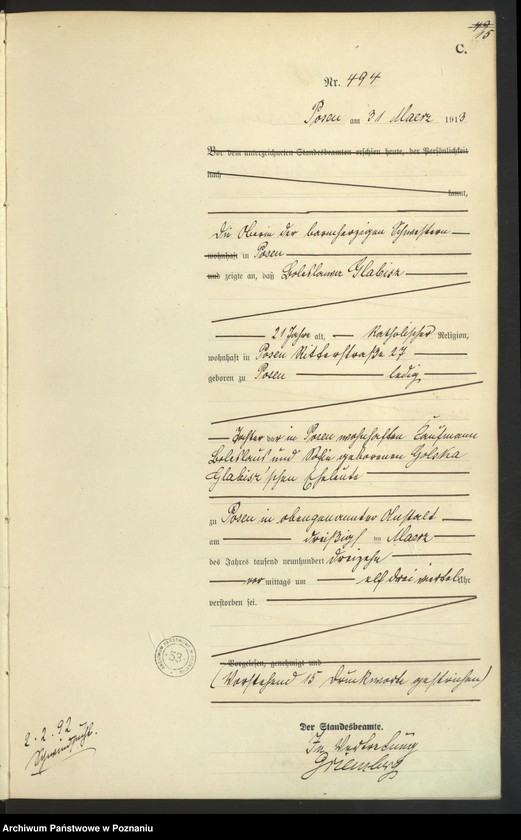 15
C.
Nr. 494
Posen am 31 Maerz 1913
Vor dem unterzeichneten Standesbeamten erschien heute, der Persönlichkeit
nach
kannt,
die Oberin der barmherzigen Schwestern
wohnhaft in Posen
und zeigte an, daß Boleslawa Glabisz
21 Jahre alt, katholischer Religion,
wohnhaft in Posen Ritterstraße 27
geboren zu Posen ledig
Tochter der in Posen wohnhaften Kaufmann
Boleslaus und geborenen Golska
Glabisz'schen Eheleute
zu Posen in obengenannter Anstalt
am dreißig ten Maerz
des Jahres tausend neunhundert dreizehn
vor mittags um elf drei viertel Uhr
verstorben sei.
Vorgelesen, genehmigt und
(Vorstehend 15 Druckworte gestrichen)
Der Standesbeamte.
In Vertretung
2.2.92
Schwindsucht.
53
Archiwum Państwowe w Poznaniu